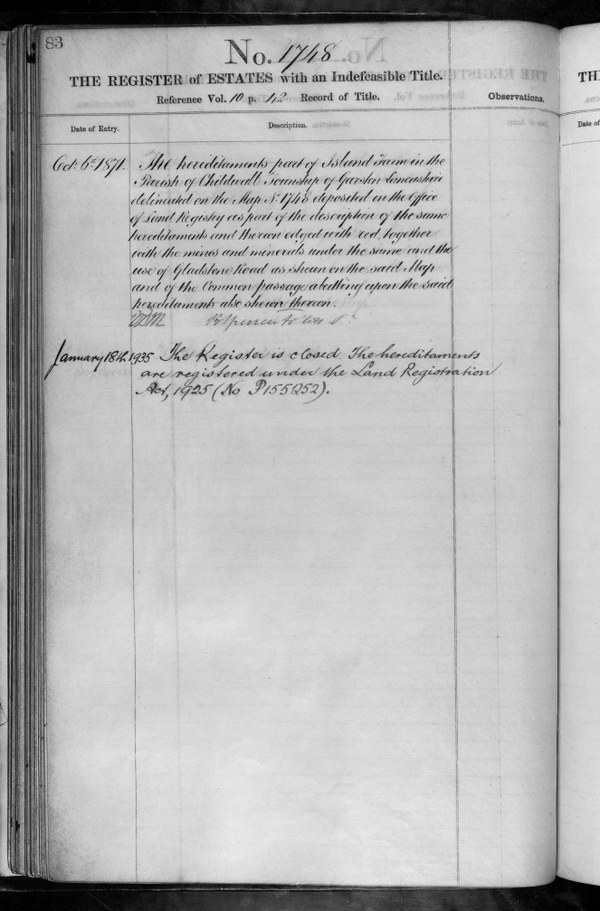 83
No. 1748
THE REGISTER of ESTATES with an Indefeasible Title.
Reference Vol. 10 p. 42 Record of Title.
Observations.
Date of Entry.
Description.
Oct. 6th 1871.
The hereditaments part of Island Farm in the
Parish of Childwall Township of Garston Lancashire
delineated on the Map No. 1748 deposited in the Office
of Land Registry as part of the description of the same
hereditaments and thereon edged with red, together
with the mines and minerals under the same and the
use of Gladstone Road as shewn on the said Map
and of the Common passage abutting upon the said
hereditaments also shewn thereon.
January 18th. 1935
The Register is closed The hereditaments
are registered under the Land Registration
Act, 1925 (No P155252).
TH
Date of